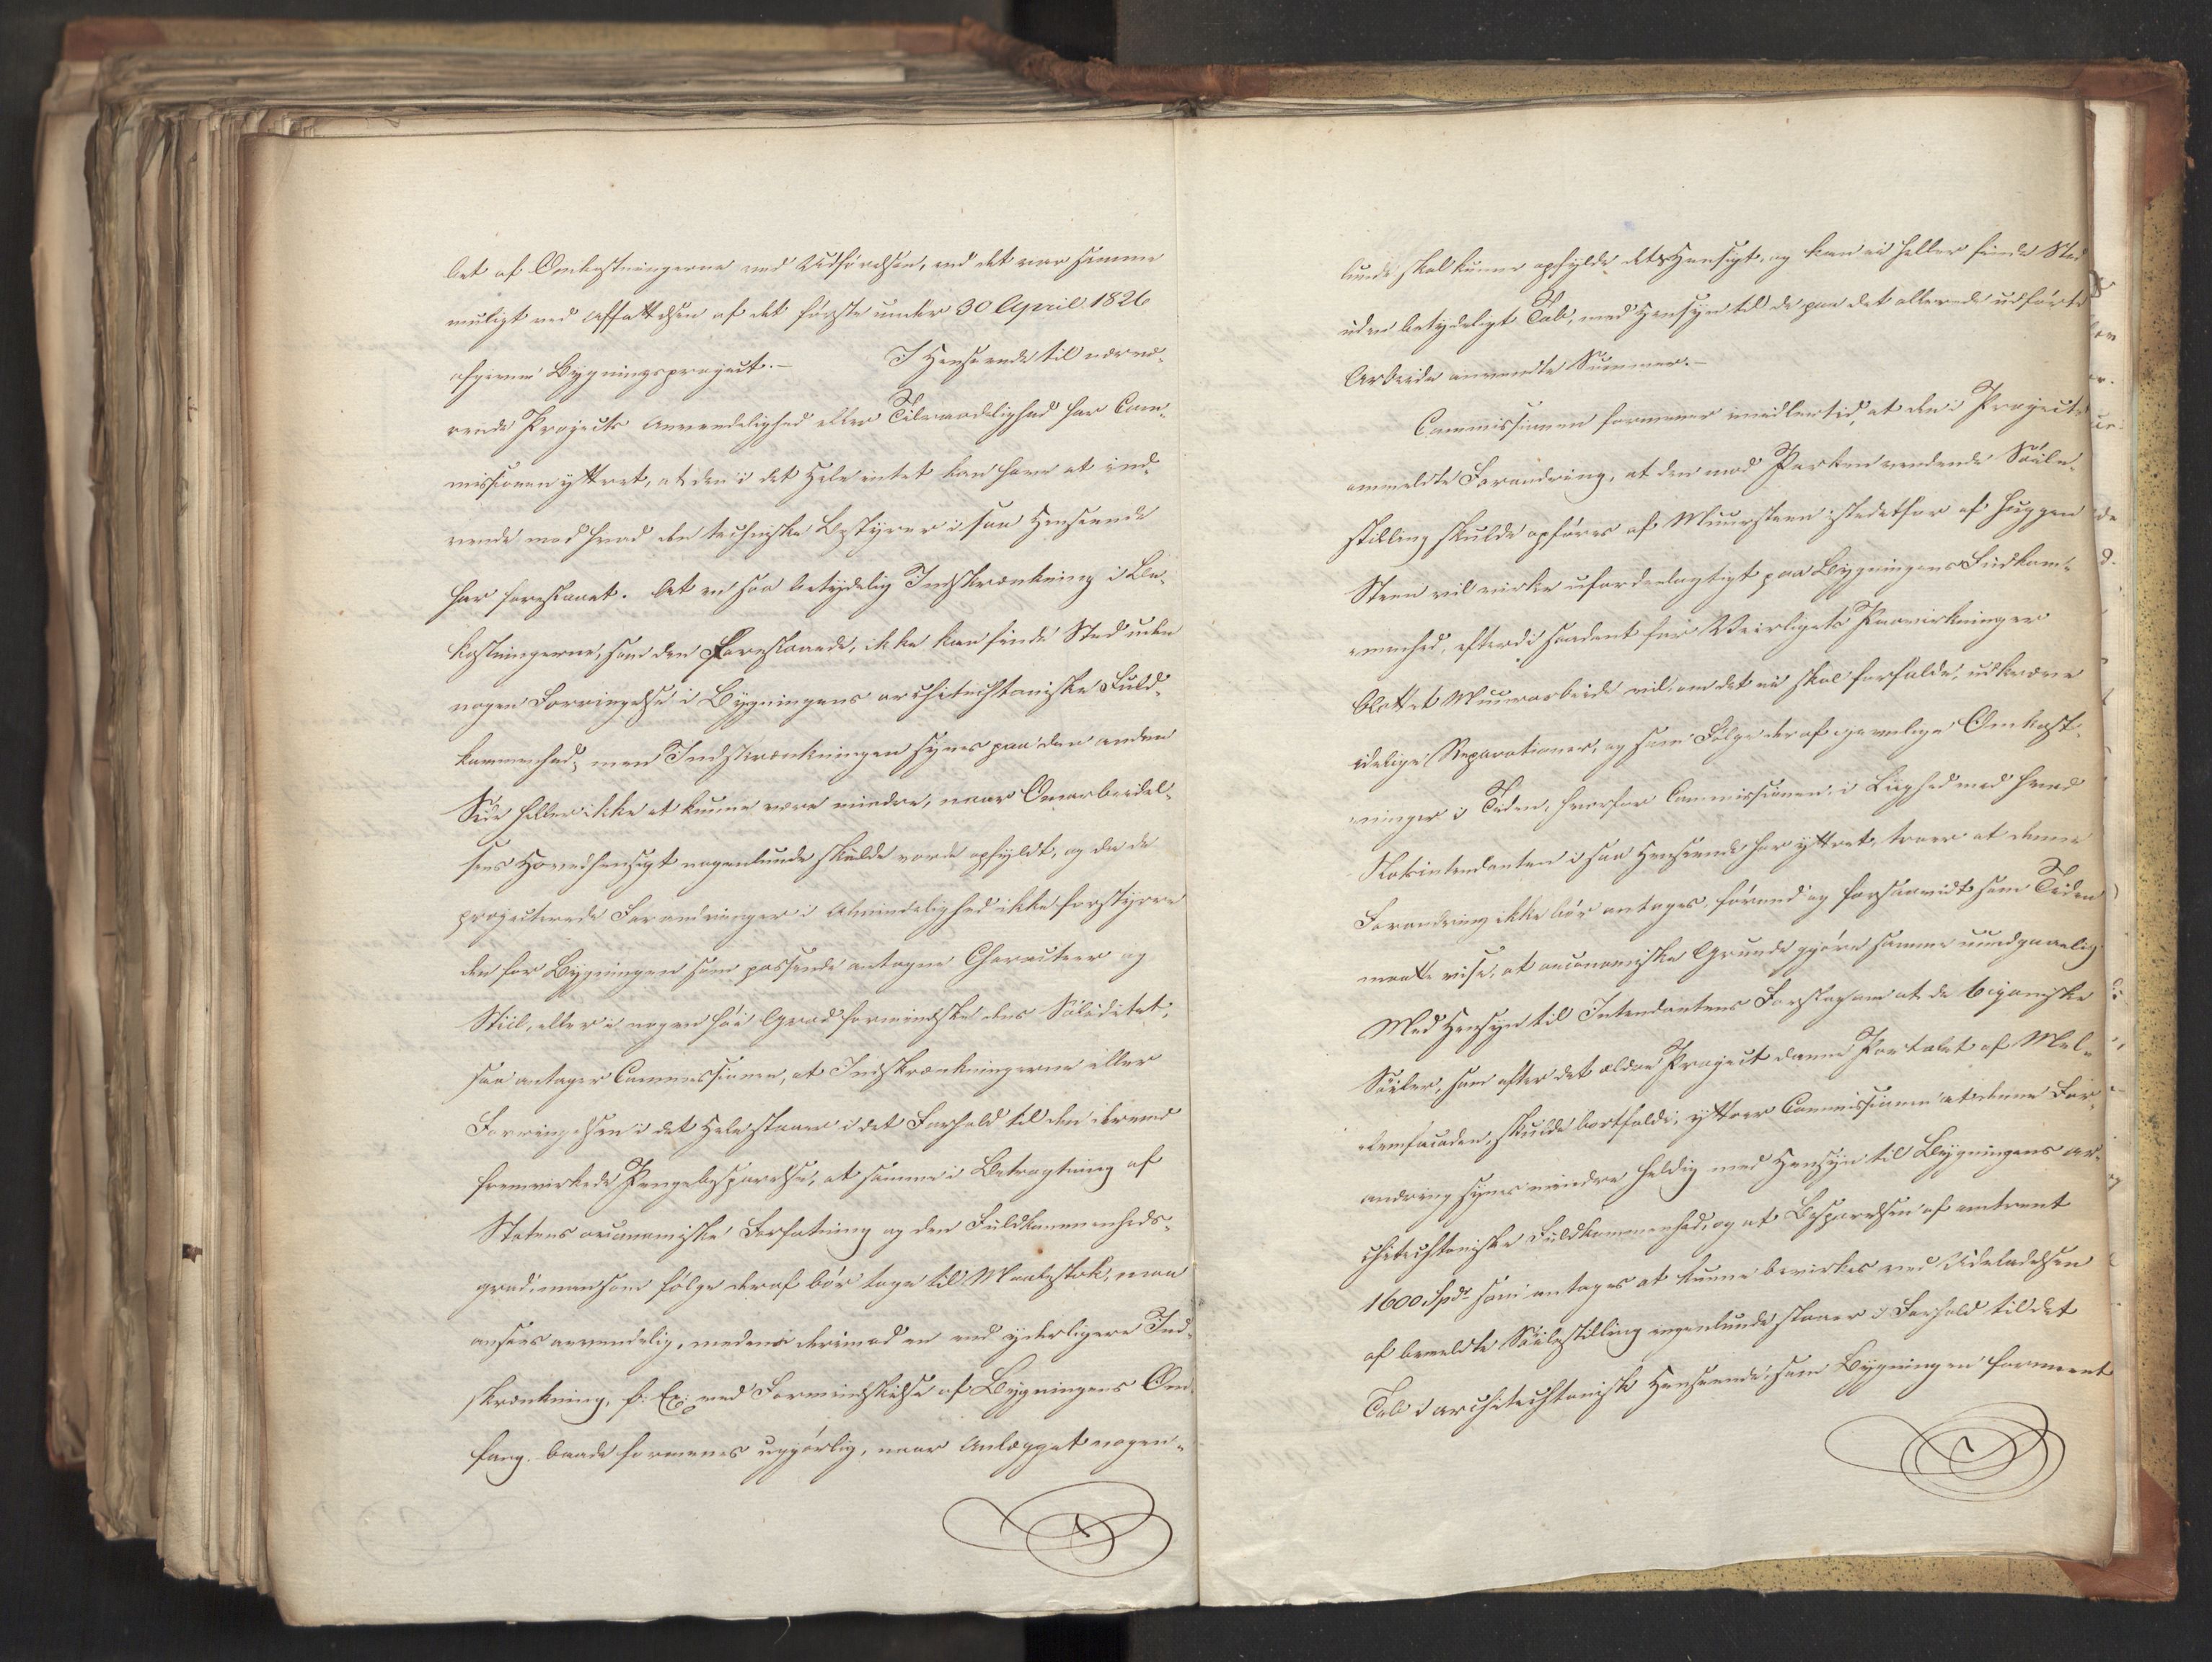 let af Omkostningerne ved Udförelsen, end det var samme
muligt ved Affattelsen af det förste under 30 April 1826
afgivne Bygningsproject.— I Henseende til nærvæ-
rende Projects Anvendelighed eller Tilraadelighed har Com-
missionen yttret, at den i det Hele intet kan have at ind-
vende mod hvad den techniske Bestyrer i saa Henseende
har foreslaaet. At en saa betydelig Indskrænkning i Be-
kostningerne, som den Foreslaaede, ikke kan finde Sted uden
nogen Forringelse i Bygningens architechtoniske Fuld-
kommenhed; men Indskrænkningen synes paa den anden
Side heller ikke at kunne være mindre, naar Omarbeidel-
sens Hovedhensigt nogenlunde skulde vorde opfyldt, og da de
projecterede Forandringer i Almindelighed ikke forstyrre
den for Bygningen som passende antagne Characteer og
Stiil, eller i nogen höi Grad formindske dens Soliditet;
saa antager Commissionen, at Indskrænkningerne eller
Forringelsen i det Hele staaer i det Forhold til den derved
fremvirkede Pengebesparelse, at samme i Betragtning af
Statens oeconomiske Forfatning og den Fuldkommenheds-
grad, man som fölge deraf bör tage til Maalestok, maa
ansees anvendelig, medens derimod en end yderligere Ind-
skrænkning, f. Ex: ved Formindskelse af Bygningens Om-
fang, baade formenes ugjörlig, naar Anlægget nogen-
lunde skal kunne opfylde dets Hensigt, og kan ei heller finde Sted
uden betydeligt Tab, med Hensyn til de paa det allerede udförte
Arbeide anvendte Summer.—
Commissionen formener imidlertid, at den i Projectet
ommeldte Forandring, at den mod Parken vendende Söile-
stilling skulde opföres af Muursteen istedetfor af huggen
Steen vil virke ufordeelagtigt paa Bygningens Fuldkom-
menhed, efterdi saadant for Veirligets Paavirkninger
blottet Muurarbeide vil, om det ei skal forfalde, udkræve
idelige Reparationer, og som Fölge deraf ogsaa Omkost-
ninger i Tiden, hvorfor Commissionen, i Liighed med hvad
Slotsintendanten i saa Henseende har yttret, troer at denne
Forandring ikke bör antages, förend og forsaavidt som Tiden
maatte vise, at oeconomiske Grunde gjöre samme uundgaaelig.
Med Hensyn til Intendantens Forslag om at de 6 ioniske
Söiler, som efter det ældre Project danne Portalet af Mel-
lemfacaden, skulde bortfalde, yttrer Commissionen at denne For-
andring synes mindre heldig med Hensyn til Bygningens ar-
chitechtoniske Fuldkommenhed, og at Besparelsen af omtrent
1600 Spdr som antages at kunne bevirkes ved Udeladelsen
af bemeldte Söilestilling ingenlunde staaer i Forhold til det
Tab i architechtonisk Henseende, som Bygningen formeent